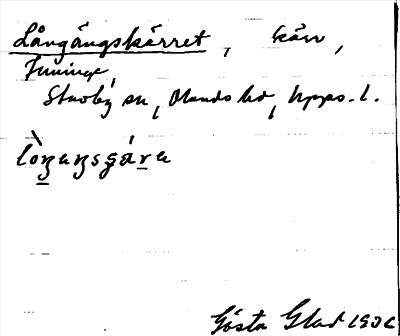 Långängskärret, kärr,
Tuninge,
Stavby sn, Olands hd, Upps. l.
lòŋaŋsɕára
Gösta Glad 1906